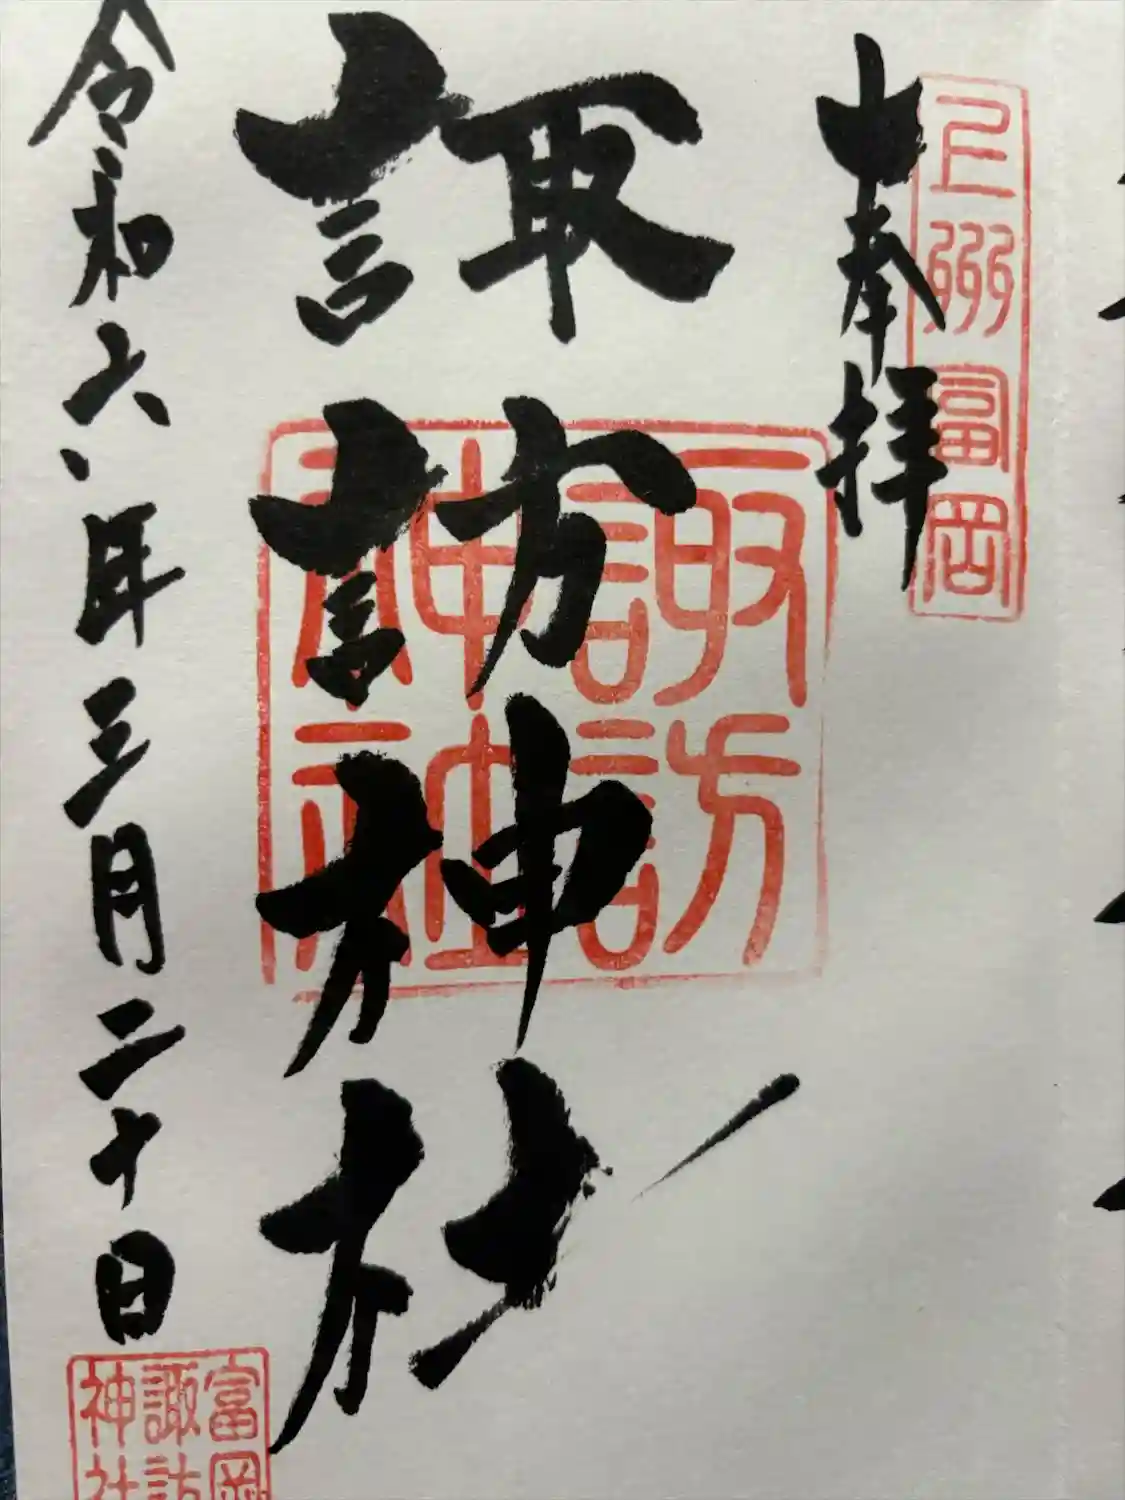 上州富岡
奉拝
諏訪神社
諏訪
神社
令和六年三月二十日
富岡
諏訪
神社